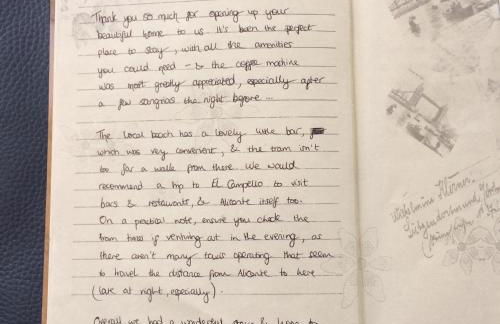 Thank you so much for opening up your
beautiful home to us. It's been the perfect
place to stay, with all the amenities
you could need - & the coffee machine
was most greatly appreciated, especially after
a few sangrias the night before ...
The local beach has a lovely little bar,
which was very convenient, & the tram isn't
too far a walk from there. We would
recommend a trip to El Campello to visit
bars & restaurants, & Alicante itself too.
On a practical note, ensure you check the
tram times if venturing out in the evening, as
there aren't many taxis operating that seem
to travel the distance from Alicante to here
(late at night, especially).
Overall we had a wonderful stay & hope to
Wilhelmine